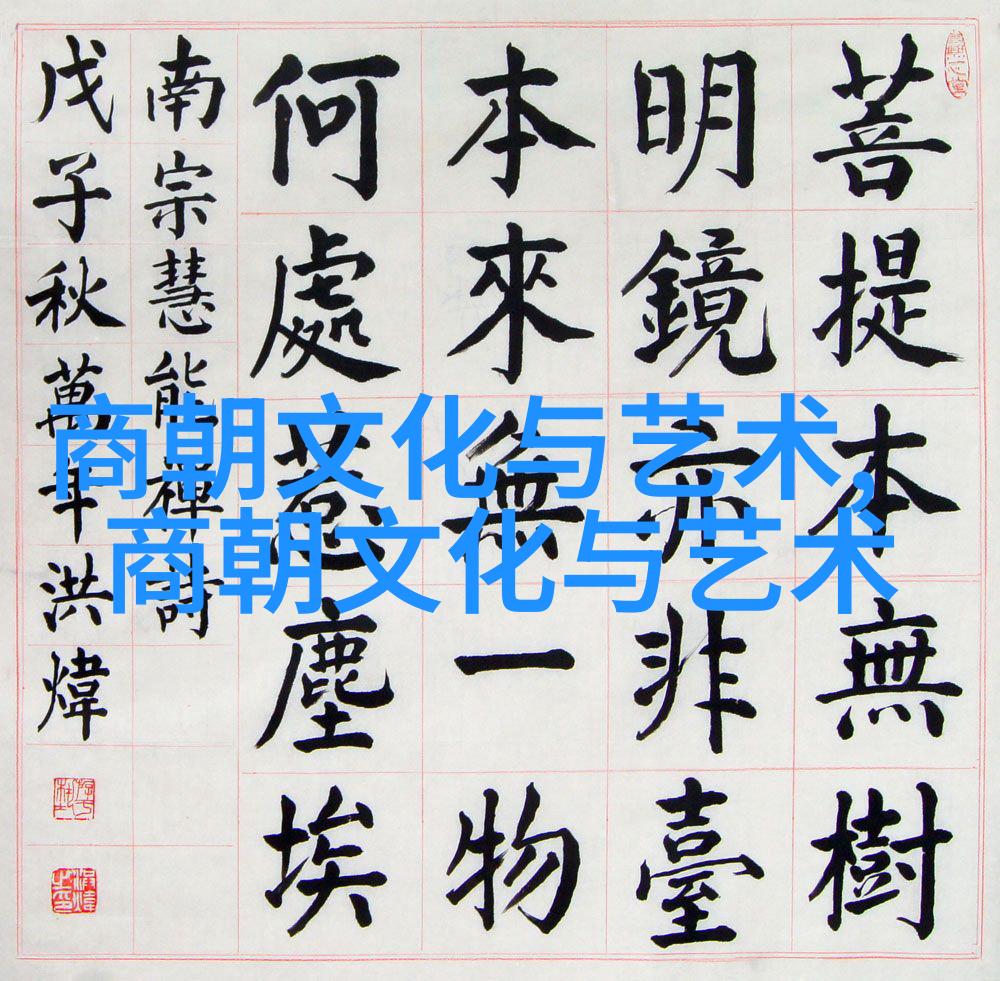 菩提本無樹
明鏡亦非臺
本來無一物
何處惹塵埃
南宗慧能禪詩
戊子秋萬年洪煒
商朝文化与艺术,
商朝文化与艺术